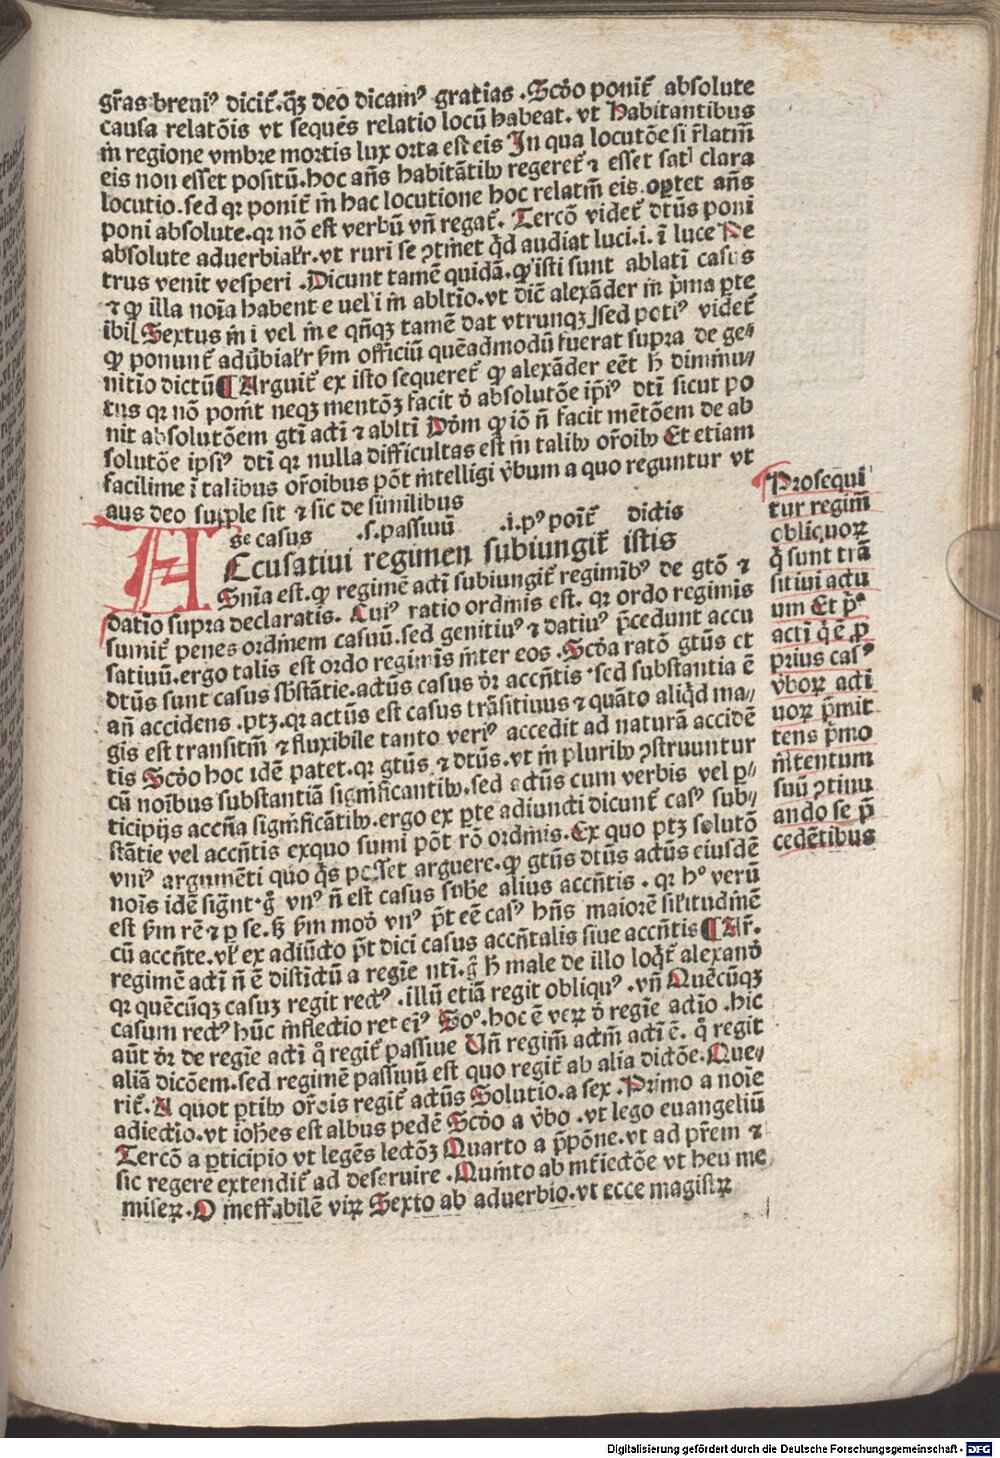 gr̃as breui⁹ dicit̃. qꝫ deo dicam⁹ gratias . Scd̃o ponit̃ absolute
causa relatõis vt sequẽs relatio locũ habeat. vt Habitantibus
in regione vmbre mortis lux orta est eis In qua locutõe si r̃latiũ
eis non esset positũ. hoc añs habitãtibꝰ regeret̃ ⁊ esset satꝭ clara
locutio. sed qꝛ ponit̃ in hac locutione hoc relatiũ eis. oꝑtet añs
poni absolute. qꝛ nõ est verbũ vñ regat̃. Tercõ videt̃ dtũs poni
absolute aduerbialr̃. vt ruri se ꝯtinet q̃d audiat luci .i. ĩ luce Pe
trus venit vesperi . Dicunt tamẽ quidã. ꝙ isti sunt ablati casus
⁊ ꝙ illa noĩa habent e uel i in abltĩo. vt dic̃ alexãder in p̃ma ꝑte
ibi Sextus in i vel in e qñqꝫ tamẽ dat vtrunqꝫ sed poti⁹ videt̃
ꝙ ponunt̃ adũbialr̃ ẜm officiũ quẽadmodũ fuerat supra de ge⸗
nitĩo dictũ ¶ Arguit̃ ex isto sequeret̃ ꝙ alexãder eẽt h̃ diminu⸗
tus qꝛ nõ ponit neqꝫ mentõꝫ facit d̃ absolutõe ip̃i⁹ dtĩ sicut po
nit absolutõem gtĩ actĩ ⁊ abltĩ Dõm ꝙ iõ ñ facit mẽtõem de ab
solutõe ipsi⁹ dtĩ qꝛ nulla difficultas est in talibꝰ or̃oibꝰ Et etiam
facilime ĩ talibus or̃oibus põt intelligi v̓bum a quo reguntur vt
aus deo supple sit ⁊ sic de similibus
se casus .s. passiuũ .i. p⁹ põit̃ dictis
ACcusatiui regimen subiungit̃ istis
Snĩa est. ꝙ regimẽ actĩ subiungit̃ regimĩb⁹ de gtõ ⁊
datĩo supra declaratis. Cui⁹ ratio ordinis est. qꝛ ordo regiminis
sumit̃ penes ordinem casuũ. sed genitiu⁹ ⁊ datiu⁹ p̃cedunt accu
satiuũ. ergo talis est ordo regiminis inter eos . Scd̃a ratõ gtũs et
dtũs sunt casus sb̃stãtie. actũs casus d̓r accñtis . sed substantia ẽ
añ accidens . ptꝫ. qꝛ actũs est casus trãsitiuus ⁊ quãto aliq̃d ma⸗
gis est transitiũ ⁊ fluxibile tanto veri⁹ accedit ad naturã accidẽ
tis Scd̃o hoc idẽ patet. qꝛ gtũs ⁊ dtũs. vt in pluribꝰ ꝯstruuntur
cũ noĩbus substantiã significantibꝰ. sed actũs cum verbis vel ꝑ⸗
ticipijs accñtia significãtibꝰ. ergo ex ꝑte adiuncti dicunt̃ cas⁹ sub⸗
stãtie vel accñtis exquo sumi põt rõ ordinis. Ex quo ptꝫ solutõ
vni⁹ argumẽti quo q̃s posset arguere. ꝙ gtũs dtũs actũs eiusdẽ
noĩs idẽ signt. g̃ vn⁹ ñ est casus sub̃e alius accñtis . qꝛ h⁹ verũ
est ẜm rẽ ⁊ ꝑ se. sꝫ ẜm mod̃ vn⁹ p̃t eẽ cas⁹ hñs maiorẽ sil̃itudinẽ
cũ accñte. vl̃ ex adiũcto p̃t dici casus accñtalis siue accñtis ¶ Ar̃.
regimẽ actĩ ñ ẽ distĩctũ a regĩe ntĩ. g̃ h̃ male de illo loq̃t̃ alexand̃
qꝛ quẽcũqꝫ casuꝫ regit rect⁹ . illũ etiã regit obliqu⁹ . vñ Quẽcũqꝫ
casum rect⁹ hũc inflectio ret ei⁹ So⁹. hoc ẽ veꝝ d̃ regĩe actĩo . hic
aũt d̓r de regĩe actĩ q̃ regit̃ passiue Vñ regim̃ actm̃ actĩ ẽ. q̃ regit
aliã dicõem. sed regimẽ passiuũ est quo regit̃ ab alia dictõe. Que⸗
rit̃. A quot ꝑtibꝰ or̃ois regit̃ actũs Solutio. a sex . Primo a noĩe
adiectio. vt ioh̃es est albus pedẽ Scd̃o a v̓bo . vt lego euangeliũ
Tercõ a ꝑticipio vt legẽs lectõꝫ Quarto a p̃põne. vt ad pr̃em ⁊
sic regere extendit̃ ad deseruire . Quinto ab int̃iectõe vt heu me
miseꝝ. O ineffabilẽ viꝝ Sexto ab aduerbio. vt ecce magistꝝ
Prosequi
tur regim̃
obliquoꝝ
q̃ sunt trã
sitiui actu
um Et p̃º
actĩ q̃ ẽ ꝓ
prius cas⁹
v̓boꝝ acti
uoꝝ p̃mit
tens p̃mo
intentum
suũ ꝯtinu
ando se p̃
cedẽtibus
Digitalisierung gefördert durch die Deutsche Forschungsgemeinschaft - DFG